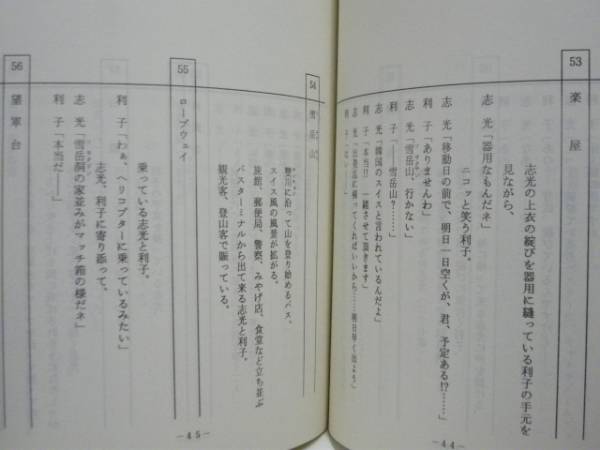 53 楽屋
志光の上衣の綻びを器用に縫っている利子の手元を
見ながら、
志光「器用なもんだネ」
ニコッと笑う利子。
志光「移動日の前で、明日一日空くが、君、予定ある!?……」
利子「ありませんわ」
志光「雪岳山、行かない」
利子「──雪岳山?……」
志光「韓国のスイスと言われているんだよ」
利子「本当!! 一緒させて頂きます」
利子「はい」
―44―
54 雪岳山
に沿って山を登り始めるバス。
スイス風の風景が拡がる。
旅館、郵便局、警察、みやげ店、食堂など立ち並ぶ
バスターミナルから出て来る志光と利子。
観光客、登山客で賑っている。
55 ロープウェイ
乗っている志光と利子。
利子「わぁ、ヘリコプターに乗っているみたい」
志光、利子に寄り添って。
志光「雪岳洞の家並みがマッチ箱の様だネ」
利子「本当だ──」
56 望軍台
―45―